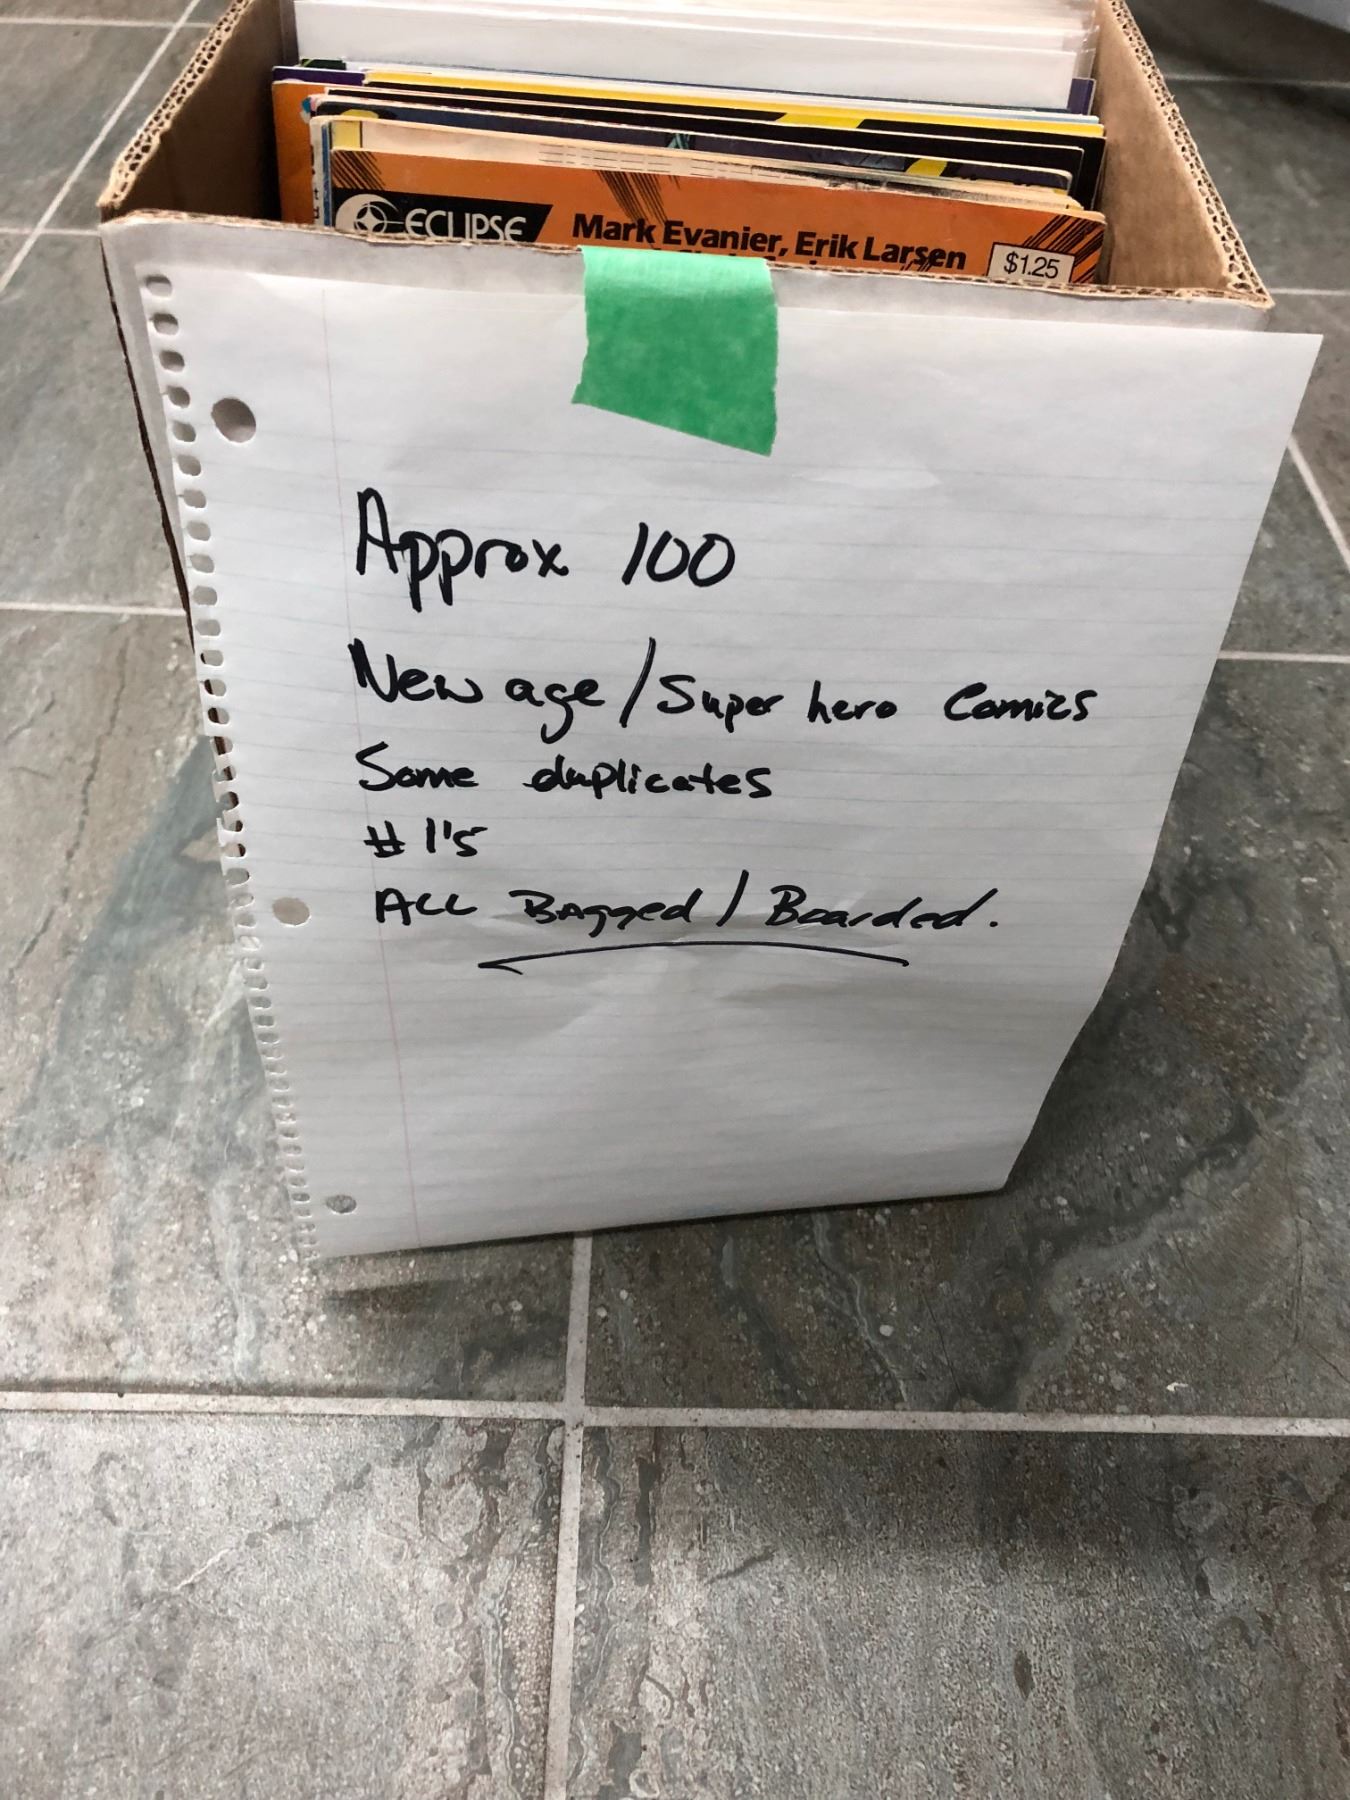 ECLIPSE
Mark Evanier, Erik Larsen
$1.25
Approx 100
New age / Super hero Comics
Some duplicates
# 1's
ALL Bagged / Boarded.